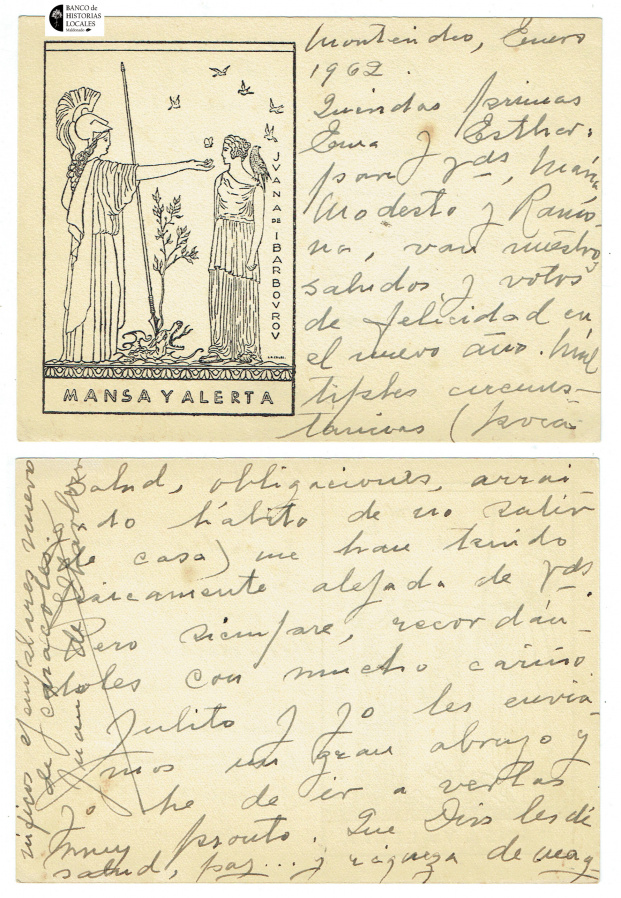 BANCO de
HISTORIAS
LOCALES
Maldonado
JVANA DE IBARBOVROV
MANSA Y ALERTA
Montevideo, Enero
1962.
Queridas primas
Ema y Esther:
para Vds, María,
Modesto y Ramo-
na, van nuestros
saludos y votos
de felicidad en
el nuevo año. Múl
tiples circuns-
tancias (poca
salud, obligaciones, arrai
gado hábito de no salir
de casa) me han tenido
físicamente alejada de Vds.
Pero siempre, recordán-
doles con mucho cariño
Julito y yo les envia-
mos un gran abrazo y
he de ir a verlas
muy pronto. Que Dios les dé
salud, paz... y riqueza de mag
níficos ejemplares nuevo
de caracoles.
Juana de Ibarbourou